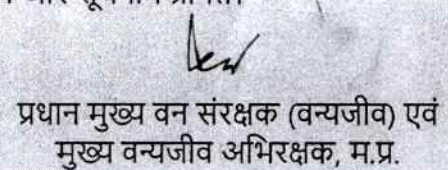 प्रधान मुख्य वन संरक्षक (वन्यजीव) एवं
मुख्य वन्यजीव अभिरक्षक, म.प्र.